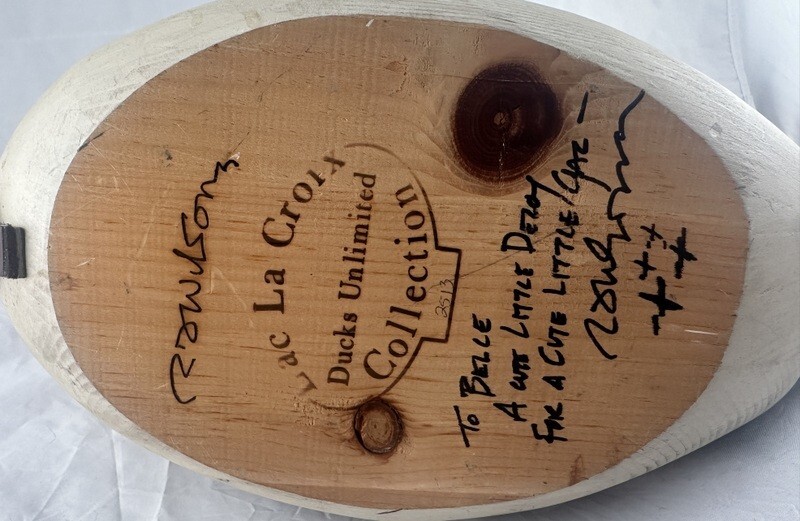 RDWilson
Lac La Croix
Ducks Unlimited
Collection
2513
To BELLE
A CUTE LITTLE DECOY
FOR A CUTE LITTLE